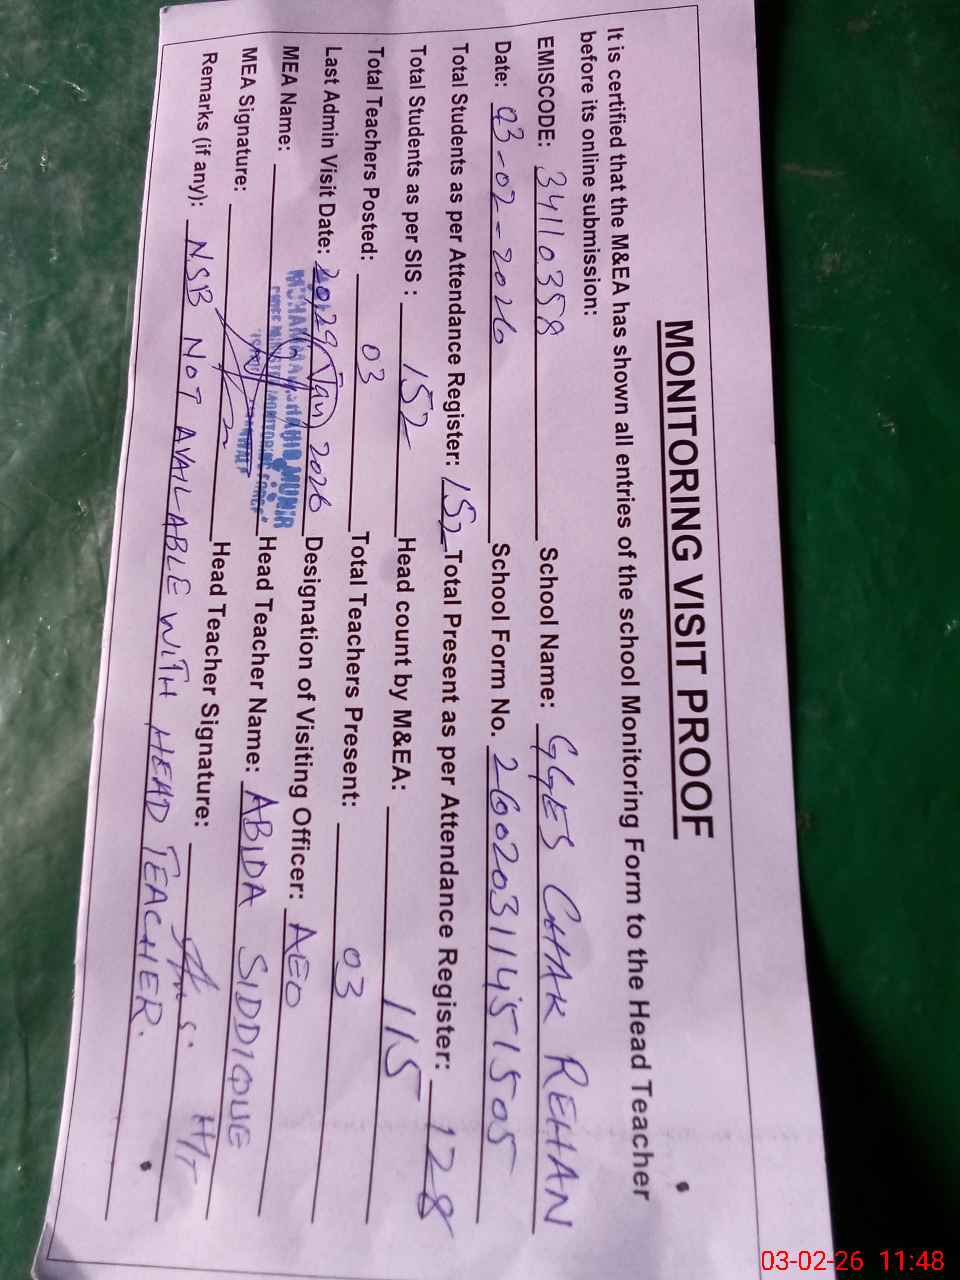 MONITORING VISIT PROOF
It is certified that the M&EA has shown all entries of the school Monitoring Form to the Head Teacher
before its online submission:
EMISCODE: 34110358 School Name: GGES CHAK REHAN
Date: 03-02-2026 School Form No. 26020311451505
Total Students as per Attendance Register: 152 Total Present as per Attendance Register: 128
Total Students as per SIS: 152 Head count by M&EA: 115
Total Teachers Posted: 03 Total Teachers Present: 03
Last Admin Visit Date: 20,29 Jan 2026 Designation of Visiting Officer: AEO
MEA Name: MUNIR Head Teacher Name: ABIDA SIDDIQUE
MEA Signature: Head Teacher Signature: HT
Remarks (if any): NSB NOT AVAILABLE WITH HEAD TEACHER.
03-02-26 11:48